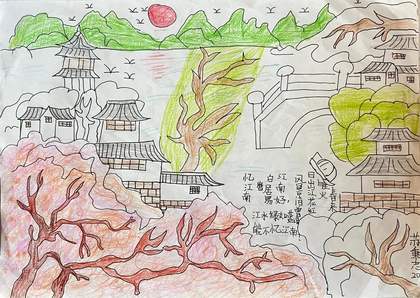 忆江南
唐
白居易
江南好,
风景旧曾谙
日出江花红
胜火
春来
江水绿如蓝
能不忆江南